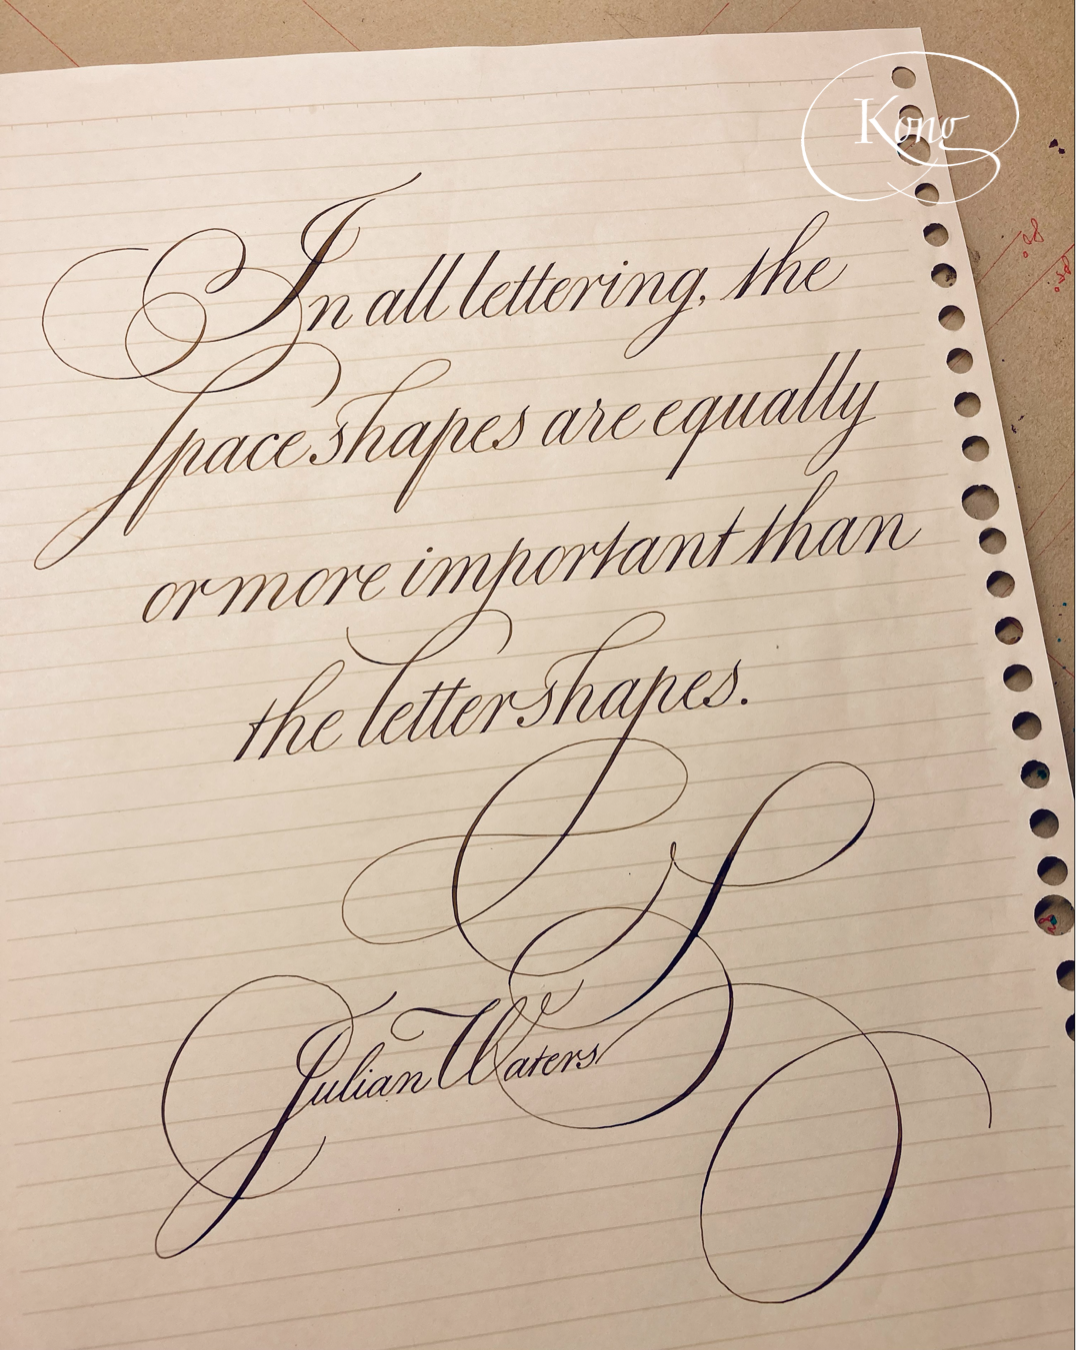 Kong
In all lettering, the
space shapes are equally
or more important than
the letter shapes.
Julian Waters